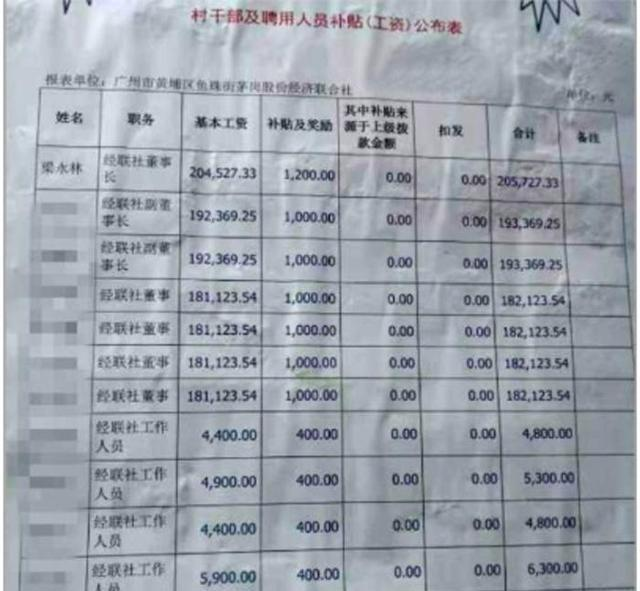 村干部及聘用人员补贴(工资)公布表
报表单位：广州市黄埔区鱼珠街茅岗股份经济联合社 单位：元
姓名 职务 基本工资 补贴及奖励 其中补贴来源于上级拨款金额 扣发 合计 备注
梁永林 经联社董事长 204,527.33 1,200.00 0.00 0.00 205,727.33
经联社副董事长 192,369.25 1,000.00 0.00 0.00 193,369.25
经联社副董事长 192,369.25 1,000.00 0.00 0.00 193,369.25
经联社董事 181,123.54 1,000.00 0.00 0.00 182,123.54
经联社董事 181,123.54 1,000.00 0.00 0.00 182,123.54
经联社董事 181,123.54 1,000.00 0.00 0.00 182,123.54
经联社董事 181,123.54 1,000.00 0.00 0.00 182,123.54
经联社工作人员 4,400.00 400.00 0.00 0.00 4,800.00
经联社工作人员 4,900.00 400.00 0.00 0.00 5,300.00
经联社工作人员 4,400.00 400.00 0.00 0.00 4,800.00
经联社工作人员 5,900.00 400.00 0.00 0.00 6,300.00